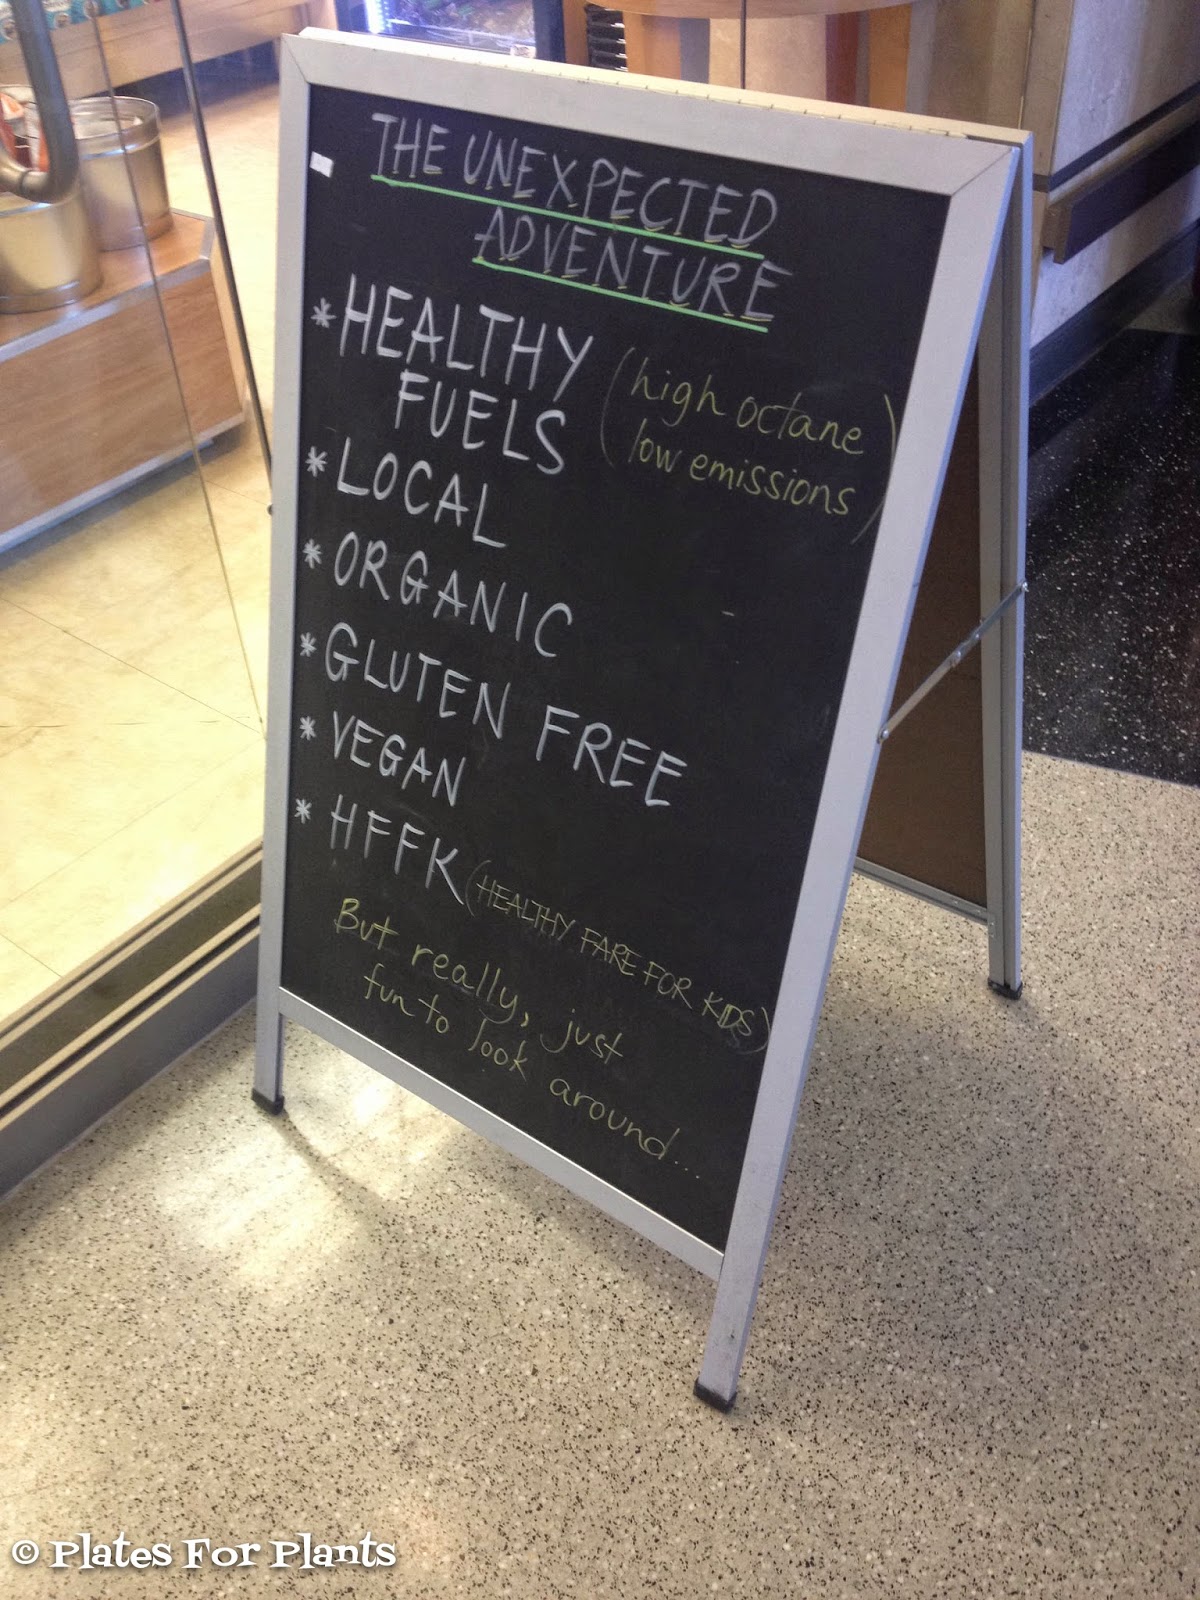 THE UNEXPECTED
ADVENTURE
* HEALTHY
FUELS
(high octane
low emissions)
* LOCAL
* ORGANIC
* GLUTEN FREE
* VEGAN
* HFFK (HEALTHY FARE FOR KIDS)
But really, just
fun to look around...
© Plates For Plants